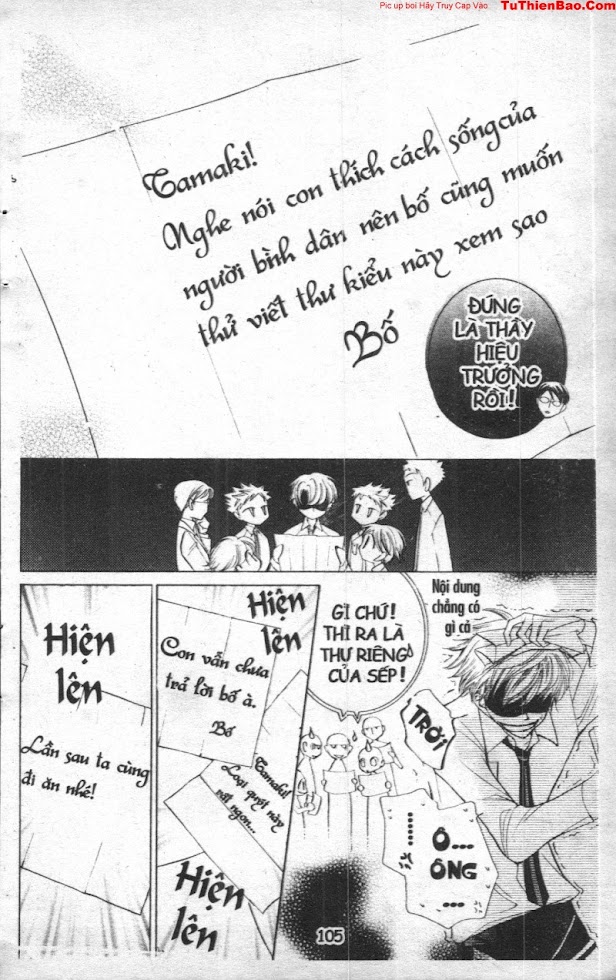 Pic up boi Hãy Truy Cap Vào: TuThienBao.Com
Tamaki!
Nghe nói con thích cách sống của
người bình dân nên bố cũng muốn
thử viết thư kiểu này xem sao
Bố
ĐÚNG
LÀ THẦY
HIỆU
TRƯỞNG
RỒI!
Nội dung
chẳng có
gì cả
GÌ CHỨ!
THÌ RA LÀ
THƯ RIÊNG
CỦA SẾP!
TRỜI
Ô...
ÔNG
...
Hiện
lên
Con vẫn chưa
trả lời bố à.
Bố
Tamaki!
Loại quýt này
rất ngon...
Hiện
lên
Hiện
lên
Lần sau ta cùng
đi ăn nhé!
105